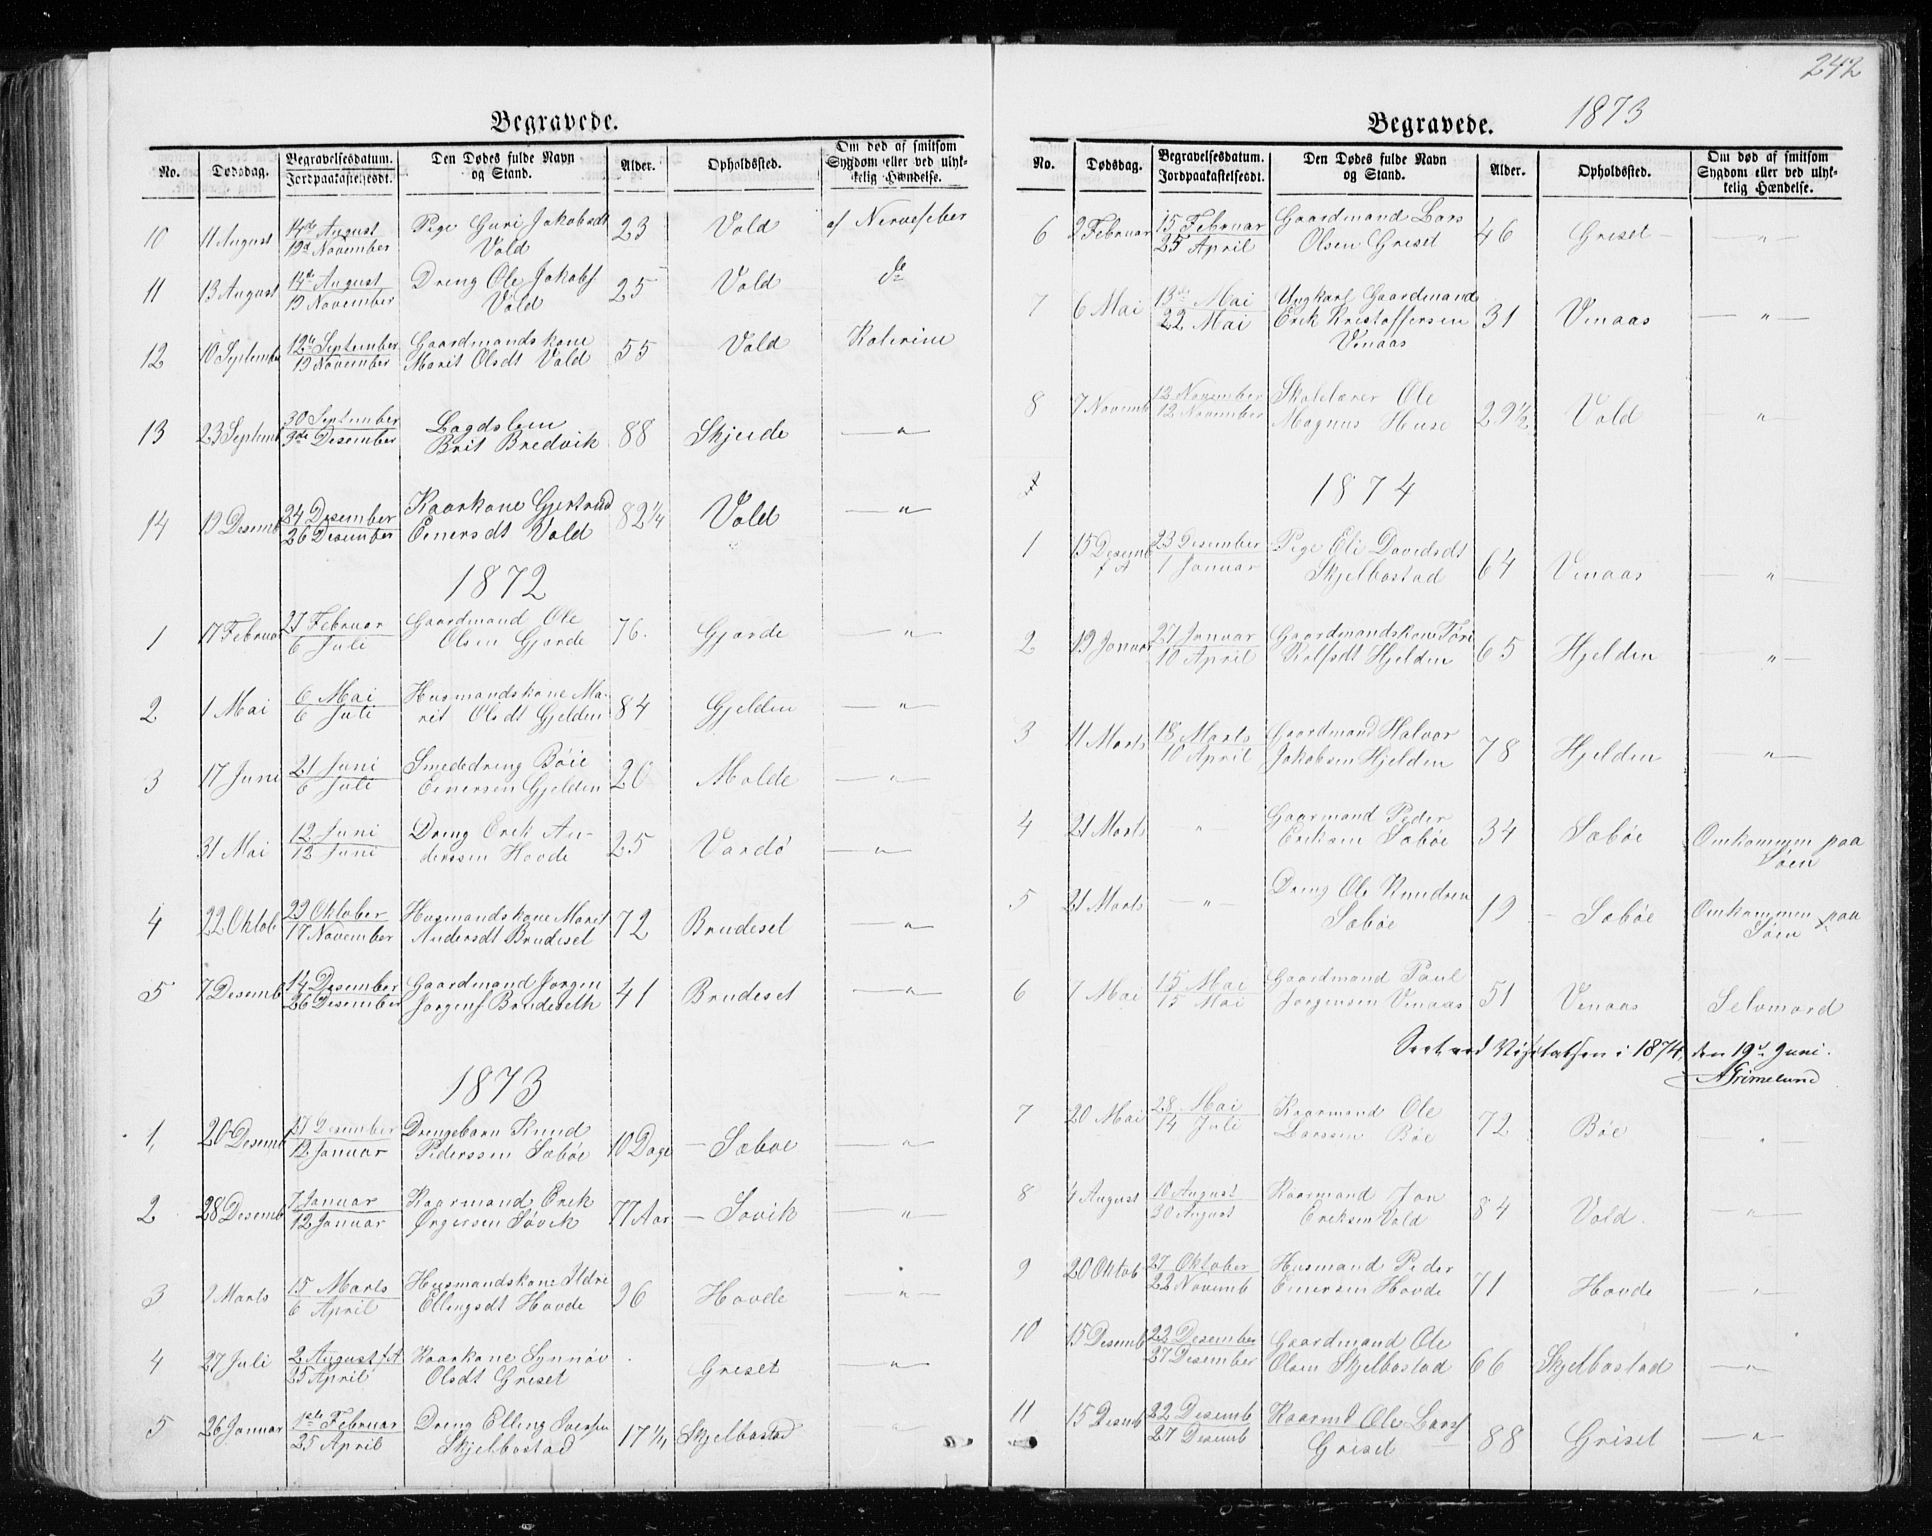 242
Begravede.
No. Dødsdag. Begravelsesdatum. Jordpaakastelsesdt. Den Dødes fulde Navn og Stand. Alder. Opholdssted. Om død af smitsom Sygdom eller ved ulykkelig Hændelse.
10 11 August 14de August Pige Guri Jakobsdt 23 Vold af Nervefeber
19d November Vold
11 13 August 14de August Dreng Ole Jakobs 25 Vold do
19 November Vold
12 10 Septemb 12te September Gaardmandskone 55 Vold Kolerine
19 November Marit Olsdt Vold
13 23 Septemb 30 September Lægdslem 88 Skjerde — " —
9de Desember Brit Bredvik
14 19 Desemb 24 Desember Kaarkone Gjertrud 82 1/4 Vold — " —
26 Desember Einersdt Vold
1872
1 17 Februar 27 Februar Gaardmand Ole 76. Gjørde — " —
6 Juli Olsen Gjørde
2 1 Mai 6 Mai Husmandskone Ma- 84 Gjelden — " —
6 Juli rit Olsdt Gjelden
3 17 Juni 21 Juni Smededreng Bøie 20 Molde — " —
6 Juli Einersen Gjelden
31 Mai 12 Juni Dreng Erik An- 25 Vardø — " —
12 Juni derssen Hovde
4 22 Oktob 29 Oktober Husmandskone Marit 72 Brudeset — " —
17 November Andersdt Brudeset
5 7 Desemb 14 Desember Gaardmand Jørgen 41 Brudeset — " —
26 Desember Jørgens Brudeseth
1873
1, 20 Desemb Desember Drengebarn Knud 10 Dage — Sæbøe — " —
12 Januar Pederssen Sæbøe
2 28 Desemb 7 Januar Kaarmand Erik 77 Aar — Søvik — " —
12 Januar Ørgersen Søvik
3 Marts 15 Marts Husmandskone Ildri 36 Hovde — " —
6 April Ellingsdt Hovde
4 27 Juli 2 August f A Kaarkone Synnøv Griset — " —
25 April Olsdt Griset
5 26 Januar 1ste Februar Dreng Elling Iverssen 17 1/2 Skjelbostad "
25 April Skjelbostad
Begravede. 1873
No. Dødsdag. Begravelsesdatum. Jordpaakastelsesdt. Den Dødes fulde Navn og Stand. Alder. Opholdssted. Om død af smitsom Sygdom eller ved ulykkelig Hændelse.
6 9 Februar 15 Februar Gaardmand Lars 46 Griset — " —
25 April Olsen Griset
7 6 Mai 13de Mai Ungkarl Gaardmand 31 Vinaas — " —
22 Mai Erik Kristoffersen
Vinaas
8 7 Novemb 12 November Skolelærer Ole 29 1/2 Vold "
12 November Magnus Huse
1874
1 15 Desemb 23 Desember Pige Eli Davidsdt 64 Vinaas — " —
f A 1 Januar Skjelbostad
2 19 Januar 27 Januar Gaardmandskone Føri 65 Hjelden — " —
10 April Rolfsdt Hjelden
3 11 Marts 18 Marts Gaardmand Halvor 78 Hjelden — " —
10 April Jakobsen Hjelden
4 21 Marts — " — Gaarmand Peder 34 Sæbøe Omkommen paa
Eriksen Sæbøe Søen
5 21 Marts — " — Dreng Ole Knudsen 19 — Sæbøe Omkommen paa
Sæbøe Søen
6 1 Mai 15 Mai Gaardmand Paul 51 Vinaas Selvmord
15 Mai Jørgensen Vinaas
Seet ved Visitatsen i 1874, den 19de Juni.
AGrimelund
7 20 Mai 28 Mai Kaarmand Ole 72 Bøe — " —
14 Juli Larssen Bøe
8 4 August 10 August Kaarmand Jon 84 Vold. — " —
30 August Eriksen Vold
9 20 Oktob 27 Oktober Husmand Peder 71 Hovde — " —
22 Novemb Einersen Hovde
10 15 Desemb 22 Desember Gaardmand Ole 66 Skjelbostad — " —
27 Desember Olsen Skjelbostad
11 15 Desemb 22 Desemb Kaarmd Ole Larss 88 Griset — " —
27 Desemb Griset